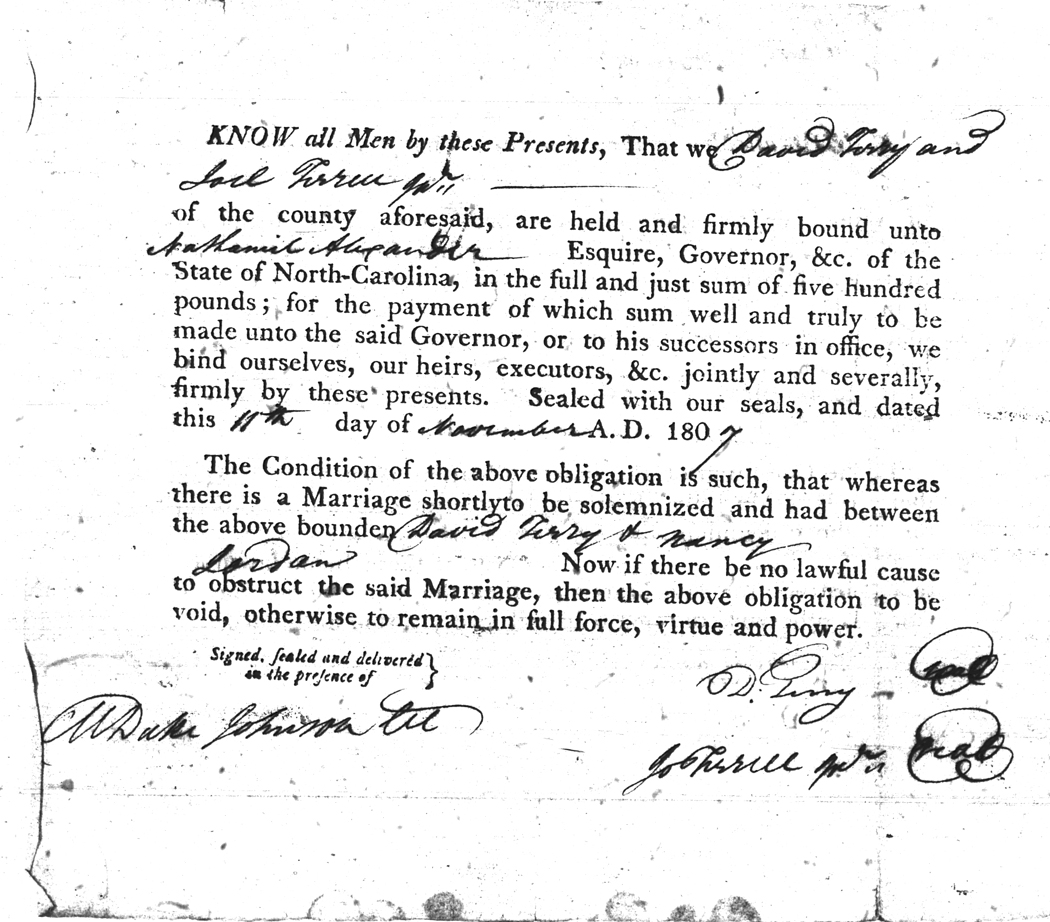 KNOW all Men by these Presents, That we David Terry and
Joel Terrell Jr
of the county aforesaid, are held and firmly bound unto
Nathaniel Alexander Esquire, Governor, &c. of the
State of North-Carolina, in the full and just sum of five hundred
pounds; for the payment of which sum well and truly to be
made unto the said Governor, or to his successors in office, we
bind ourselves, our heirs, executors, &c. jointly and severally,
firmly by these presents. Sealed with our seals, and dated
this 11th day of November A. D. 1807
The Condition of the above obligation is such, that whereas
there is a Marriage shortlyto be solemnized and had between
the above bounden David Terry & Nancy
Jordan Now if there be no lawful cause
to obstruct the said Marriage, then the above obligation to be
void, otherwise to remain in full force, virtue and power.
Signed, sealed and delivered
in the presence of
D. Terry seal
Duke Johnson
Jo Terrell Jr seal